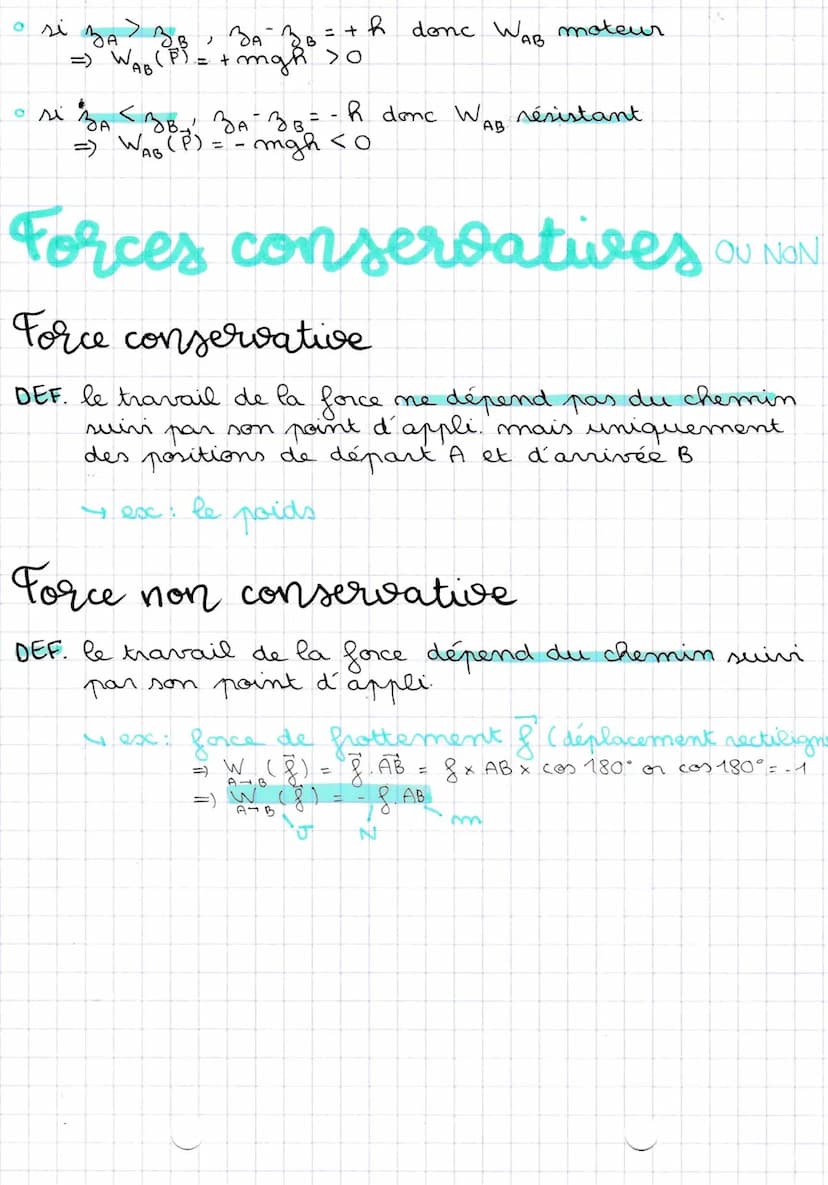 ° si zA > zB, zA - zB = + h donc WAB moteur
=> WAB(P⃗) = + mgh > 0
° si zA < zB, zA - zB = - h donc WAB résistant
=> WAB(P⃗) = - mgh < 0
Forces conservatives OU NON
Force conservative
DEF. le travail de la force ne dépend pas du chemin
suivi par son point d'appli. mais uniquement
des positions de départ A et d'arrivée B
↳ ex : le poids
Force non conservative
DEF. le travail de la force dépend du chemin suivi
par son point d'appli.
↳ ex : force de frottement f⃗ (déplacement rectiligne
=> W A→B (f⃗) = f⃗ . AB⃗ = f × AB × cos 180° or cos 180° = -1
=> W A→B (f⃗) = - f . AB
J N m